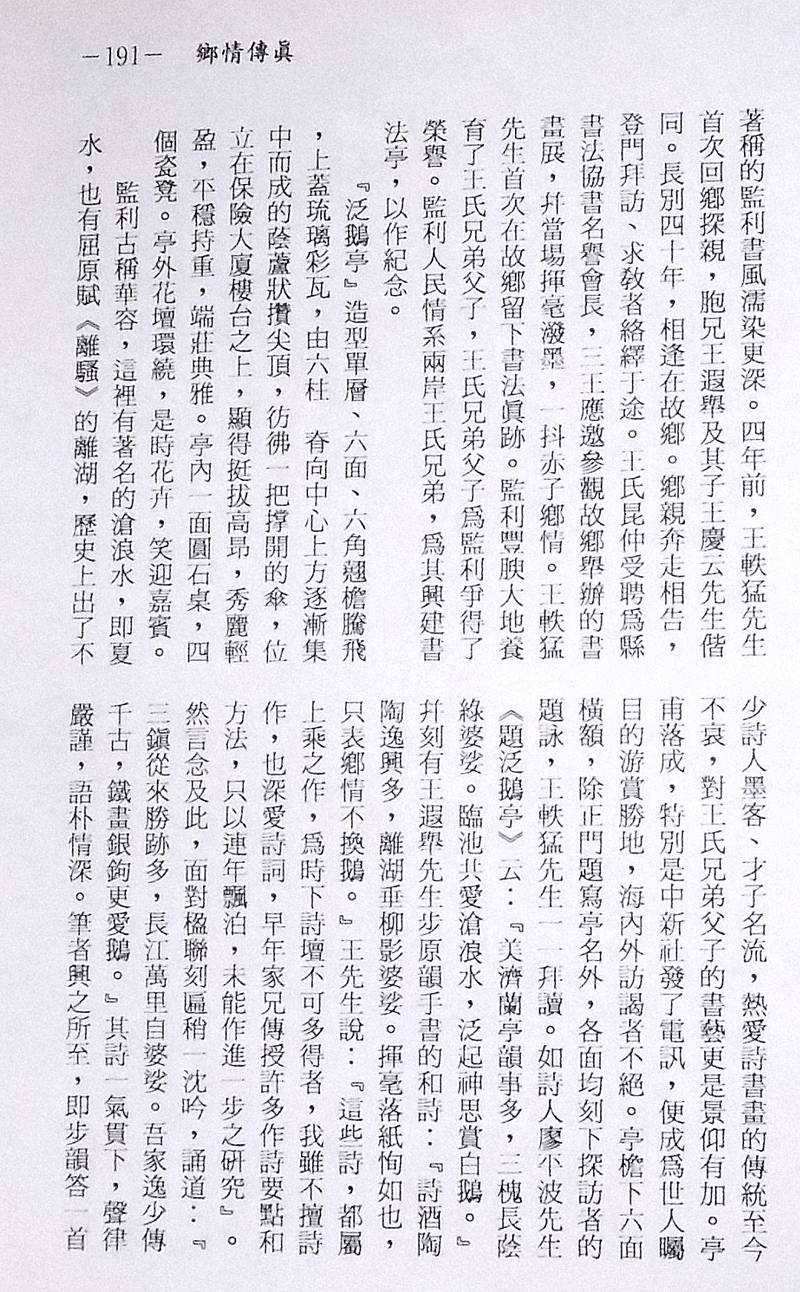 —191— 鄉情傳眞
著稱的監利書風濡染更深。四年前，王軼猛先生
首次回鄉探親，胞兄王遐舉及其子王慶云先生偕
同。長別四十年，相逢在故鄉。鄉親奔走相告，
登門拜訪、求敎者絡繹于途。王氏昆仲受聘爲縣
書法協書名譽會長，三王應邀參觀故鄉舉辦的書
畫展，幷當場揮毫潑墨，一抖赤子鄉情。王軼猛
先生首次在故鄉留下書法眞跡。監利豐腴大地養
育了王氏兄弟父子，王氏兄弟父子爲監利爭得了
榮譽。監利人民情系兩岸王氏兄弟，爲其興建書
法亭，以作紀念。
『泛鵝亭』造型單層、六面、六角翹檐騰飛
，上蓋琉璃彩瓦，由六柱 脊向中心上方逐漸集
中而成的蔭蘆狀攢尖頂，彷彿一把撑開的傘，位
立在保險大厦樓台之上，顯得挺拔高昂，秀麗輕
盈，平穩持重，端莊典雅。亭內一面圓石桌，四
個瓷凳。亭外花壇環繞，是時花卉，笑迎嘉賓。
監利古稱華容，這裡有著名的滄浪水，即夏
水，也有屈原賦《離騷》的離湖，歷史上出了不
少詩人墨客、才子名流，熱愛詩書畫的傳統至今
不哀，對王氏兄弟父子的書藝更是景仰有加。亭
甫落成，特別是中新社發了電訊，便成爲世人矚
目的游賞勝地，海內外訪謁者不絕。亭檐下六面
橫額，除正門題寫亭名外，各面均刻下探訪者的
題詠，王軼猛先生一一拜讀。如詩人廖不波先生
《題泛鵝亭》云：『美濟蘭亭韻事多，三槐長蔭
綠婆娑。臨池共愛滄浪水，泛起神思賞白鵝。』
幷刻有王遐舉先生步原韻手書的和詩：『詩酒陶
陶逸興多，離湖垂柳影婆娑。揮毫落紙恂如也，
只表鄉情不換鵝。』王先生說：『這些詩，都屬
上乘之作，爲時下詩壇不可多得者，我雖不擅詩
作，也深愛詩詞，早年家兄傳授許多作詩要點和
方法，只以連年飄泊，未能作進一步之研究』。
然言念及此，面對楹聯刻匾稍一沈吟，誦道：『
三鎭從來勝跡多，長江萬里自婆娑。吾家逸少傳
千古，鐵畫銀鉤更愛鵝。』其詩一氣貫下，聲律
嚴謹，語朴情深。筆者興之所至，即步韻答一首